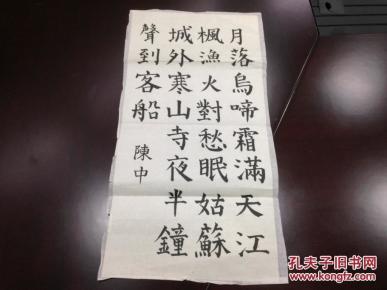 月落烏啼霜滿天江
楓漁火對愁眠姑蘇
城外寒山寺夜半鐘
聲到客船
陳中
孔夫子旧书网